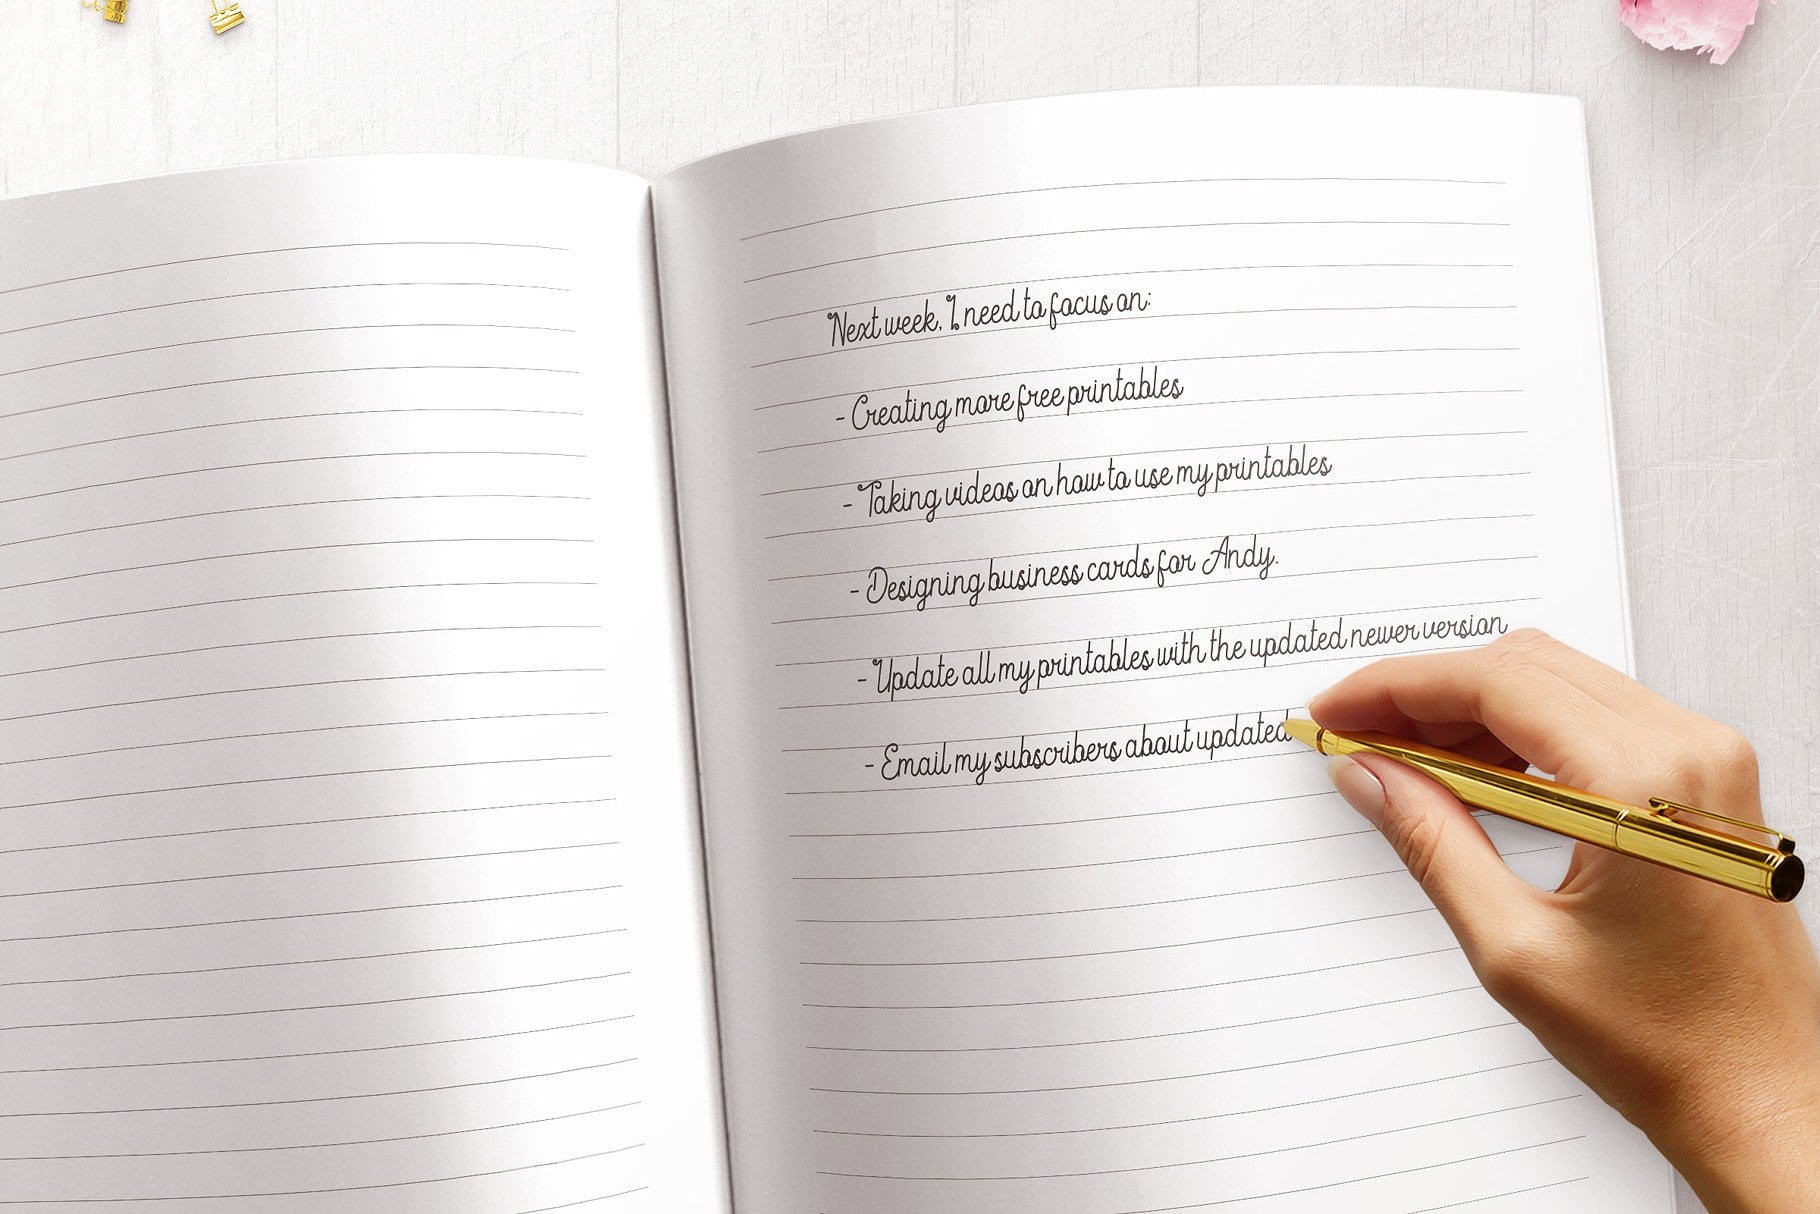 Next week, I need to focus on:
- Creating more free printables
- Taking videos on how to use my printables
- Designing business cards for Andy.
- Update all my printables with the updated newer version
- Email my subscribers about updated